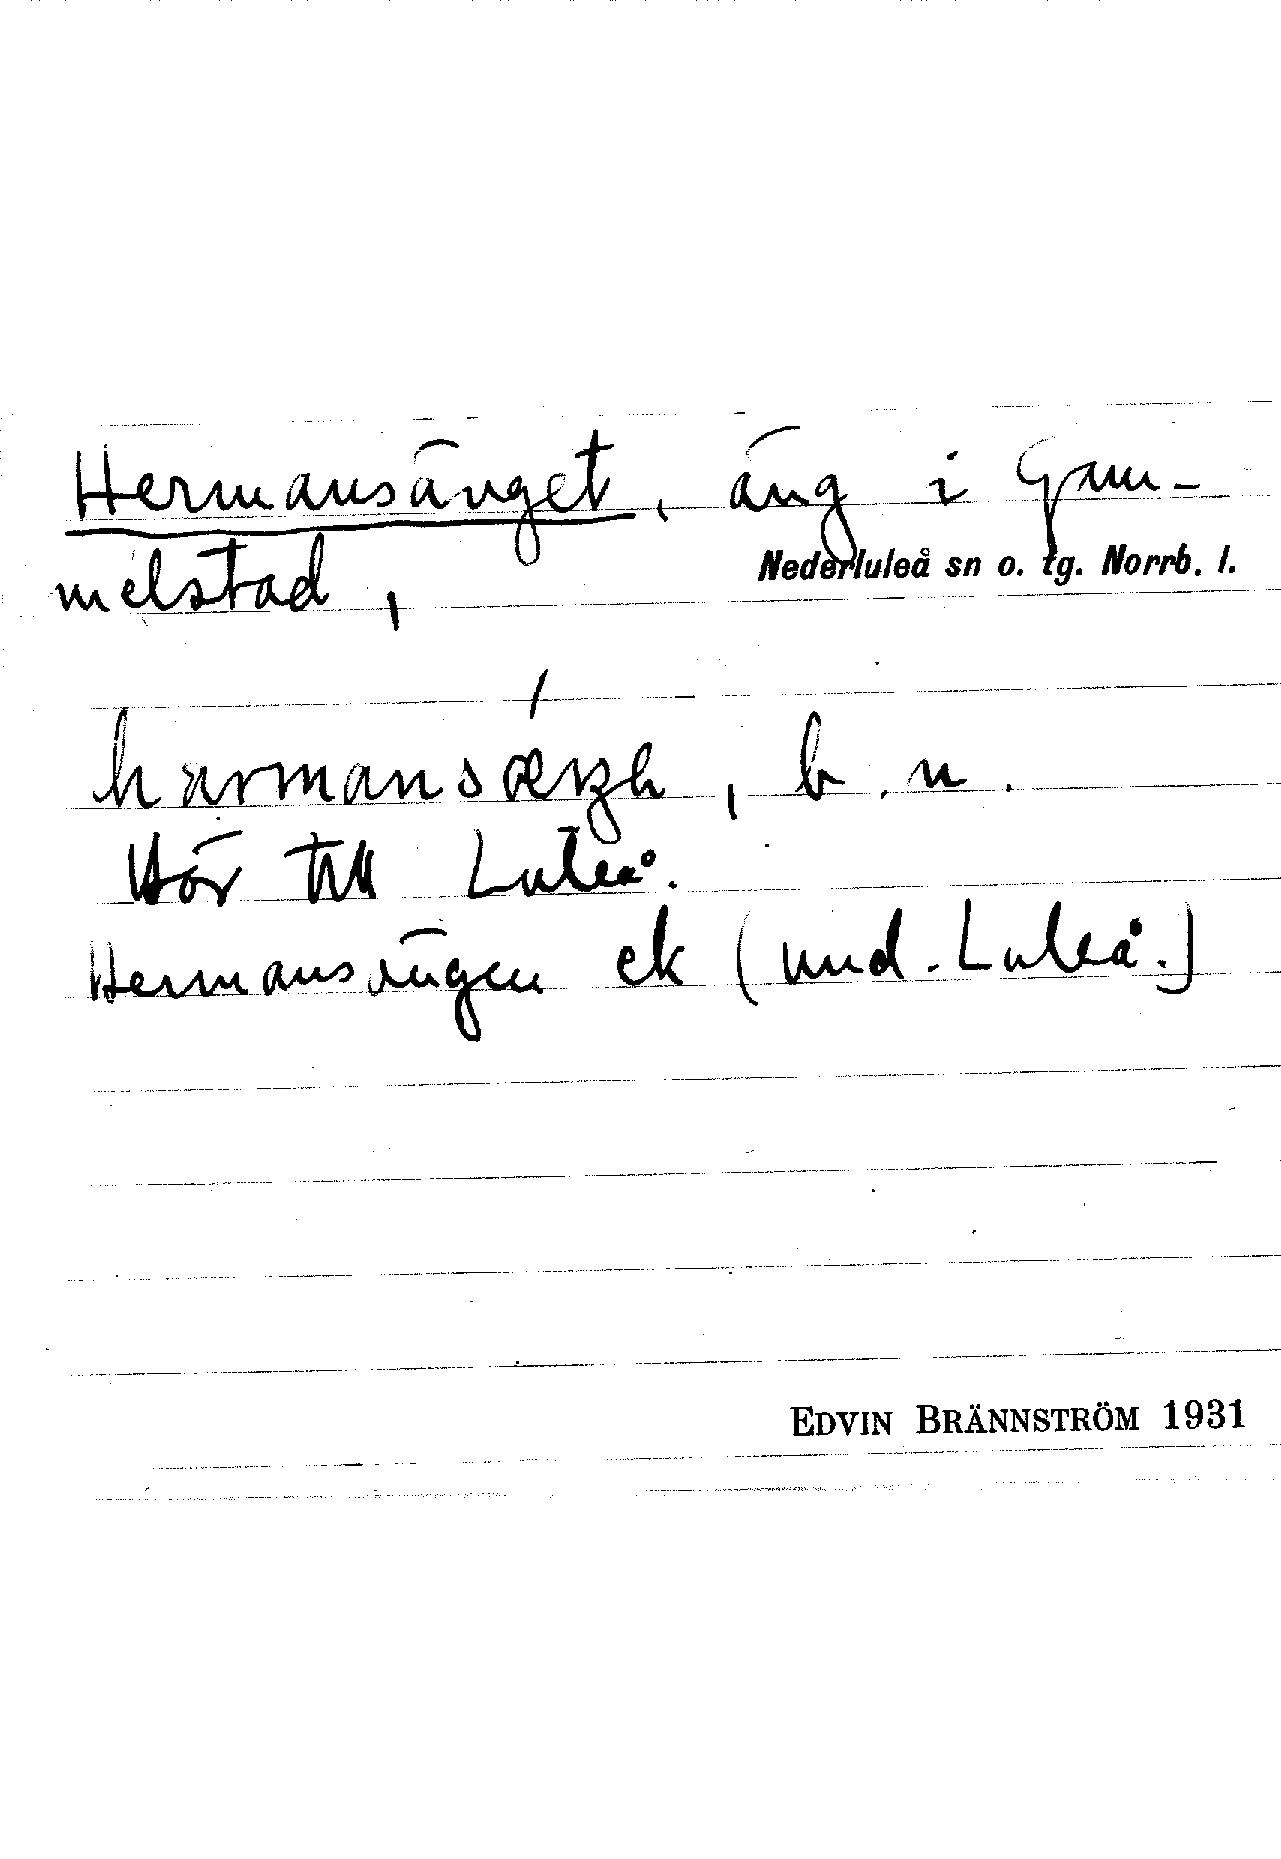 Hermansänget, äng i Gam-
melstad,
Nederluleå sn o. tg. Norrb. l.
b. n.
Hör till Luleå.
Hermansängen ek (und. Luleå.)
EDVIN BRÄNNSTRÖM 1931